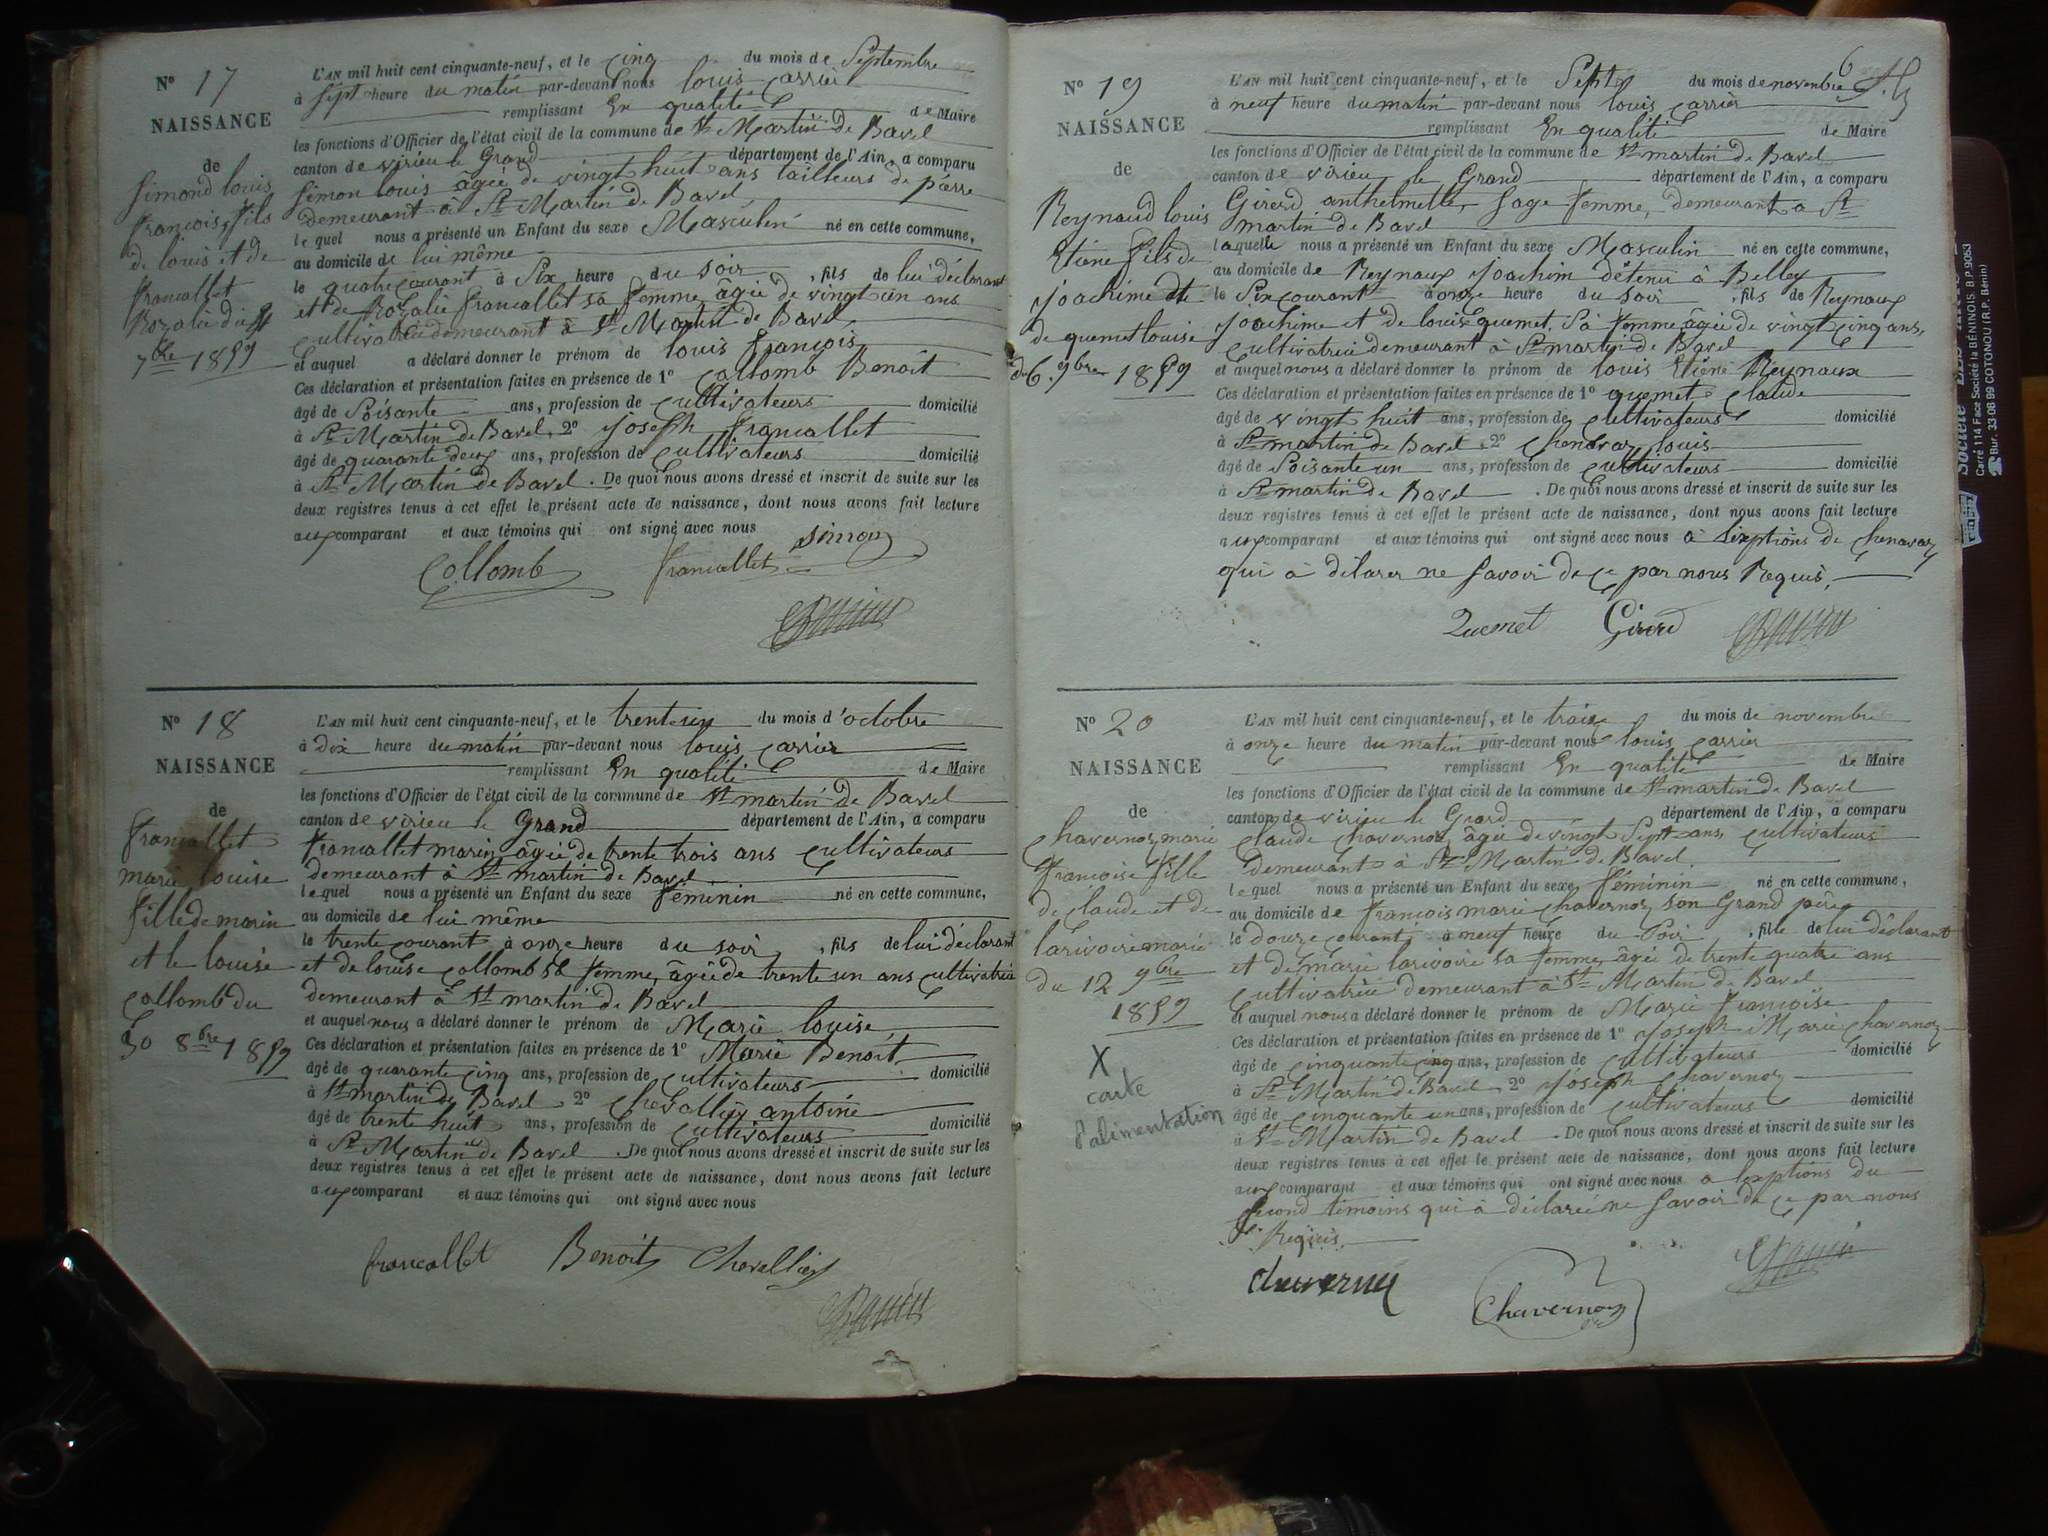 N° 17
NAISSANCE
de
Simond louis
francois, fils
de louis et de
francallet
Rozalie du 4
7bre 1859
L'AN mil huit cent cinquante-neuf, et le cinq du mois de Septembre
à Sept heure du matin par-devant nous louis carrier
remplissant En qualité de Maire
les fonctions d'Officier de l'état civil de la commune de St Martin de Bavel
canton de virieu le Grand département de l'Ain, a comparu
Simon louis âgée de vingt huit ans tailleurs de pierre
demeurant à St Martin de Bavel
lequel nous a présenté un Enfant du sexe Masculin né en cette commune,
au domicile de lui même
le quatre courant à Six heure du soir, fils de lui déclarant
et de Rozalie francallet sa femme âgée de vingt un ans
cultivatrice demeurant à St Martin de Bavel
et auquel a déclaré donner le prénom de louis françois
Ces déclaration et présentation faites en présence de 1° Collomb Benoit
âgé de Soisante ans, profession de cultivateurs domicilié
à St Martin de Bavel, 2° joseph francallet
âgé de quarante deux ans, profession de cultivateurs domicilié
à St Martin de Bavel. De quoi nous avons dressé et inscrit de suite sur les
deux registres tenus à cet effet le présent acte de naissance, dont nous avons fait lecture
aux comparant et aux témoins qui ont signé avec nous
Collomb francallet Simon
N° 18
NAISSANCE
de
francallet
marie louise
fille de marin
et le louise
collomb du
30 8bre 1859
L'AN mil huit cent cinquante-neuf, et le trente un du mois d'octobre
à dix heure du matin par-devant nous louis carrier
remplissant En qualité de Maire
les fonctions d'Officier de l'état civil de la commune de St martin de Bavel
canton de virieu le Grand département de l'Ain, a comparu
francallet marin âgée de trente trois ans cultivateurs
demeurant à St martin de Bavel
lequel nous a présenté un Enfant du sexe féminin né en cette commune,
au domicile de lui même
le trente courant à onze heure du soir, fils de lui déclarant
et de louise collomb sa femme, âgée de trente un ans cultivatrice
demeurant à St martin de Bavel
et auquel nous a déclaré donner le prénom de Marie louise
Ces déclaration et présentation faites en présence de 1° Marie Benoit
âgé de quarante cinq ans, profession de cultivateurs domicilié
à St martin de Bavel, 2° chevallier antoine
âgé de trente huit ans, profession de cultivateurs domicilié
à St Martin de Bavel. De quoi nous avons dressé et inscrit de suite sur les
deux registres tenus à cet effet le présent acte de naissance, dont nous avons fait lecture
aux comparant et aux témoins qui ont signé avec nous
francallet Benoit Chevallier
6
N° 19
NAISSANCE
de
Reynaud louis
Etiène fils de
joachime et
de quemet louise
du 6. 9bre 1859
L'AN mil huit cent cinquante-neuf, et le Sept du mois de novembre
à neuf heure du matin par-devant nous louis carrier
remplissant En qualité de Maire
les fonctions d'Officier de l'état civil de la commune de St martin de Bavel
canton de virieu le Grand département de l'Ain, a comparu
Girerd anthelmette, sage femme, demeurant a St
martin de Bavel
laquelle nous a présenté un Enfant du sexe Masculin né en cette commune,
au domicile de Reynaux joachim détenu à Belley
le Six courant à onze heure du soir, fils de Reynaux
joachime et de louise quemet, Sa femme âgée de vingt cinq ans,
cultivatrice demeurant à St martin de Bavel
et auquel nous a déclaré donner le prénom de louis Etiène Reynaux
Ces déclaration et présentation faites en présence de 1° quemet claude
âgé de vingt huit ans, profession de cultivateurs domicilié
à St martin de Bavel, 2° chenavaz louis
âgé de Soisante un ans, profession de cultivateurs domicilié
à St martin de Bavel. De quoi nous avons dressé et inscrit de suite sur les
deux registres tenus à cet effet le présent acte de naissance, dont nous avons fait lecture
aux comparant et aux témoins qui ont signé avec nous à lexptions de Chenavaz
qui à délarer ne savoir de ce par nous Requis,
Quemet Girerd
N° 20
NAISSANCE
de
chavernoz marie
françoise fille
de claude et de
larivoire marie
du 12 9bre
1859
X
carte
d'alimentation
L'AN mil huit cent cinquante-neuf, et le traize du mois de novembre
à onze heure du matin par-devant nous louis carrier
remplissant En qualité de Maire
les fonctions d'Officier de l'état civil de la commune de St martin de Bavel
canton de virieu le Grand département de l'Ain, a comparu
claude chavernoz âgée de vingt Sept ans, cultivateurs
demeurant à St Martin de Bavel.
lequel nous a présenté un Enfant du sexe féminin né en cette commune,
au domicile de françois marie chavernoz son Grand père
le douze courant à neuf heure du Soir, fille de lui déclarant
et de marie larivoire sa femme âgée de trente quatre ans
cultivatrice demeurant à St Martin de Bavel
et auquel nous a déclaré donner le prénom de Marie françoise
Ces déclaration et présentation faites en présence de 1° joseph Marie chavernoz
âgé de cinquante cinq ans, profession de cultivateurs domicilié
à St Martin de Bavel, 2° joseph chavernoz
âgé de cinquante un ans, profession de cultivateurs domicilié
à St Martin de Bavel. De quoi nous avons dressé et inscrit de suite sur les
deux registres tenus à cet effet le présent acte de naissance, dont nous avons fait lecture
aux comparant et aux témoins qui ont signé avec nous a lexptions du
second témoins qui à déclarée ne savoir de ce par nous
Requis.
Chavernoz
Carré 114 Face Société la BÉNINOIS. B.P. 9063
Bur. 33-08-99 COTONOU (R.P. Bénin)